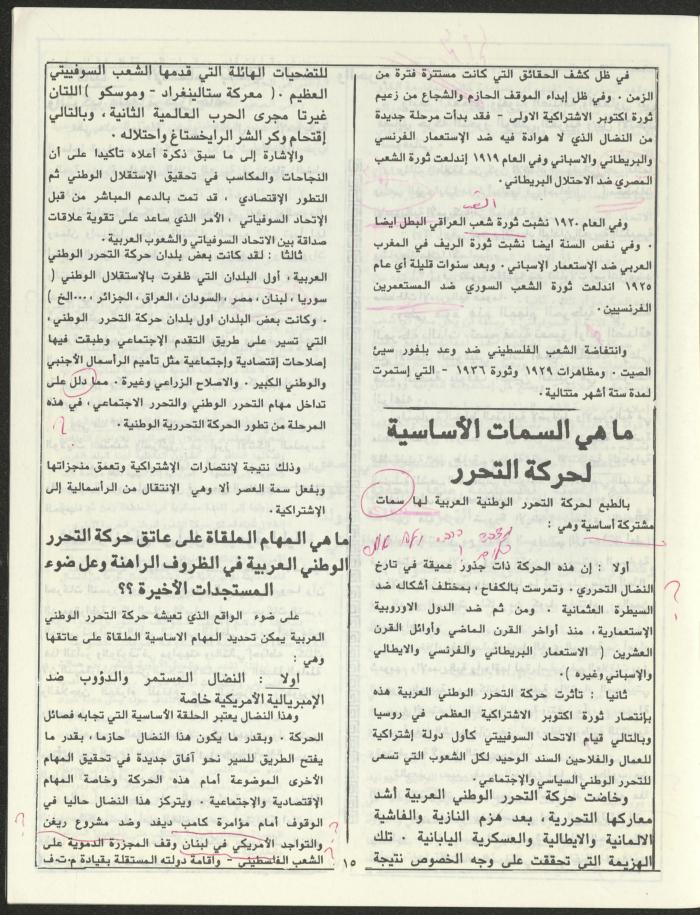 في ظل كشف الحقائق التي كانت مستترة فترة من
الزمن . وفي ظل إبداء الموقف الحازم والشجاع من زعيم
ثورة اكتوبر الاشتراكية الاولى - فقد بدأت مرحلة جديدة
من النضال الذي لا هوادة فيه ضد الإستعمار الفرنسي
والبريطاني والاسباني وفي العام ١٩١٩ إندلعت ثورة الشعب
المصري ضد الاحتلال البريطاني .
الشعب
وفي العام ١٩٢٠ نشبت ثورة شعب العراقي البطل ايضا
. وفي نفس السنة ايضا نشبت ثورة الريف في المغرب
العربي ضد الإستعمار الإسباني . وبعد سنوات قليلة أي عام
١٩٢٥ اندلعت ثورة الشعب السوري ضد المستعمرين
الفرنسيين .
وانتفاضة الشعب الفلسطيني ضد وعد بلفور سيئ
الصيت . ومظاهرات ١٩٢٩ وثورة ١٩٣٦ - التي إستمرت
لمدة ستة أشهر متتالية .
ما هي السمات الأساسية
لحركة التحرر
بالطبع لحركة التحرر الوطنية العربية لها سمات
مشتركة أساسية وهي :
اولا : إن هذه الحركة ذات جذور عميقة في تارخ
النضال التحرري . وتمرست بالكفاح ، بمختلف أشكاله ضد
السيطرة العثمانية . ومن ثم ضد الدول الاوروبية
الإستعمارية ، منذ أواخر القرن الماضي وأوائل القرن
العشرين ( الاستعمار البريطاني والفرنسي والايطالي
والإسباني وغيره ) .
ثانيا : تأثرت حركة التحرر الوطني العربية هذه
بإنتصار ثورة اكتوبر الاشتراكية العظمى في روسيا
وبالتالي قيام الاتحاد السوفييتي كأول دولة إشتراكية
للعمال والفلاحين السند الوحيد لكل الشعوب التي تسعى
للتحرر الوطني السياسي والإجتماعي .
وخاضت حركة التحرر الوطني العربية أشد
معاركها التحررية ، بعد هزم النازية والفاشية
الالمانية والايطالية والعسكرية اليابانية . تلك
الهزيمة التي تحققت على وجه الخصوص نتيجة
للتضحيات الهائلة التي قدمها الشعب السوفييتي
العظيم . ( معركة ستالينغراد - وموسكو ) اللتان
غيرتا مجرى الحرب العالمية الثانية ، وبالتالي
إقتحام وكر الشر الرايخستاغ وأحتلاله .
والإشارة إلى ما سبق ذكرة أعلاه تأكيدا على أن
النجاحات والمكاسب في تحقيق الإستقلال الوطني ثم
التطور الإقتصادي ، قد تمت بالدعم المباشر من قبل
الإتحاد السوفياتي ، الأمر الذي ساعد على تقوية علاقات
صداقة بين الاتحاد السوفياتي والشعوب العربية .
ثالثا : لقد كانت بعض بلدان حركة التحرر الوطني
العربية ، أول البلدان التي ظفرت بالإستقلال الوطني (
سوريا ، لبنان ، مصر ، السودان ، العراق ، الجزائر ، ...الخ )
. وكانت بعض البلدان اول بلدان حركة التحرر الوطني ،
التي تسير على طريق التقدم الإجتماعي وطبقت فيها
إصلاحات إقتصادية وإجتماعية مثل تأميم الرأسمال الأجنبي
والوطني الكبير . والاصلاح الزراعي وغيرة . مما دلل على
تداخل مهام التحرر الوطني والتحرر الاجتماعي ، في هذه
المرحلة من تطور الحركة التحررية الوطنية .
؟
وذلك نتيجة لإنتصارات الإشتراكية وتعمق منجزاتها
وبفعل سمة العصر ألا وهي الإنتقال من الرأسمالية إلى
الإشتراكية .
ما هي المهام الملقاة على عاتق حركة التحرر
الوطني العربية في الظروف الراهنة وعل ضوء
المستجدات الأخيرة ؟؟
على ضوء الواقع الذي تعيشه حركة التحرر الوطني
العربية يمكن تحديد المهام الاساسية الملقاة على عاتقها
وهي :
اولا : النضال المستمر والدؤوب ضد
الإمبريالية الأمريكية خاصة
وهذا النضال يعتبر الحلقة الأساسية التي تجابه فصائل
الحركة . وبقدر ما يكون هذا النضال حازما ، بقدر ما
يفتح الطريق للسير نحو آفاق جديدة في تحقيق المهام
الأخرى الموضوعة أمام هذه الحركة وخاصة المهام
الإقتصادية والإجتماعية . ويتركز هذا النضال حاليا في
الوقوف أمام مؤامرة كامب ديفد وضد مشروع ريغن
والتواجد الأمريكي في لبنان وقف المجزرة الدموية على
الشعب الفلسطيني - وأقامة دولته المستقلة بقيادة م.ت.ف
١٥